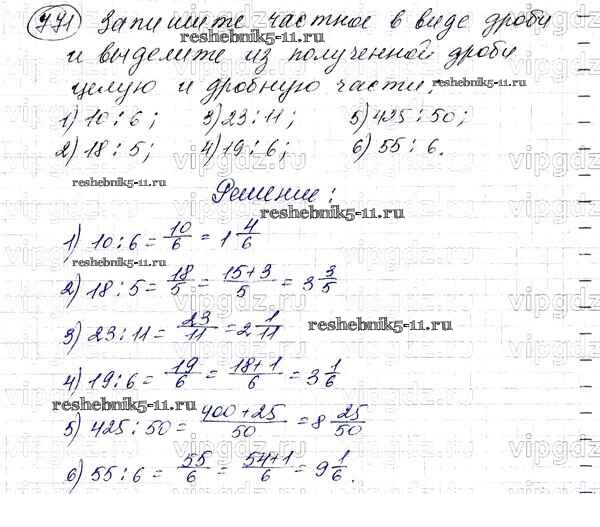 771 Запишите частное в виде дроби
reshebnik5-11.ru
и выделите из полученной дроби
целую и дробную части:
reshebnik5-11.ru
1) 10:6; 3) 23:11; 5) 425:50;
2) 18:5; 4) 19:6; 6) 55:6.
vipgdz.ru
reshebnik5-11.ru
Решение:
reshebnik5-11.ru
1) 10:6 = 10/6 = 1 4/6
reshebnik5-11.ru
2) 18:5 = 18/5 = 15+3/5 = 3 3/5
vipgdz.ru
3) 23:11 = 23/11 = 2 1/11
reshebnik5-11.ru
4) 19:6 = 19/6 = 18+1/6 = 3 1/6
reshebnik5-11.ru
5) 425:50 = 400+25/50 = 8 25/50
vipgdz.ru
6) 55:6 = 55/6 = 54+1/6 = 9 1/6.